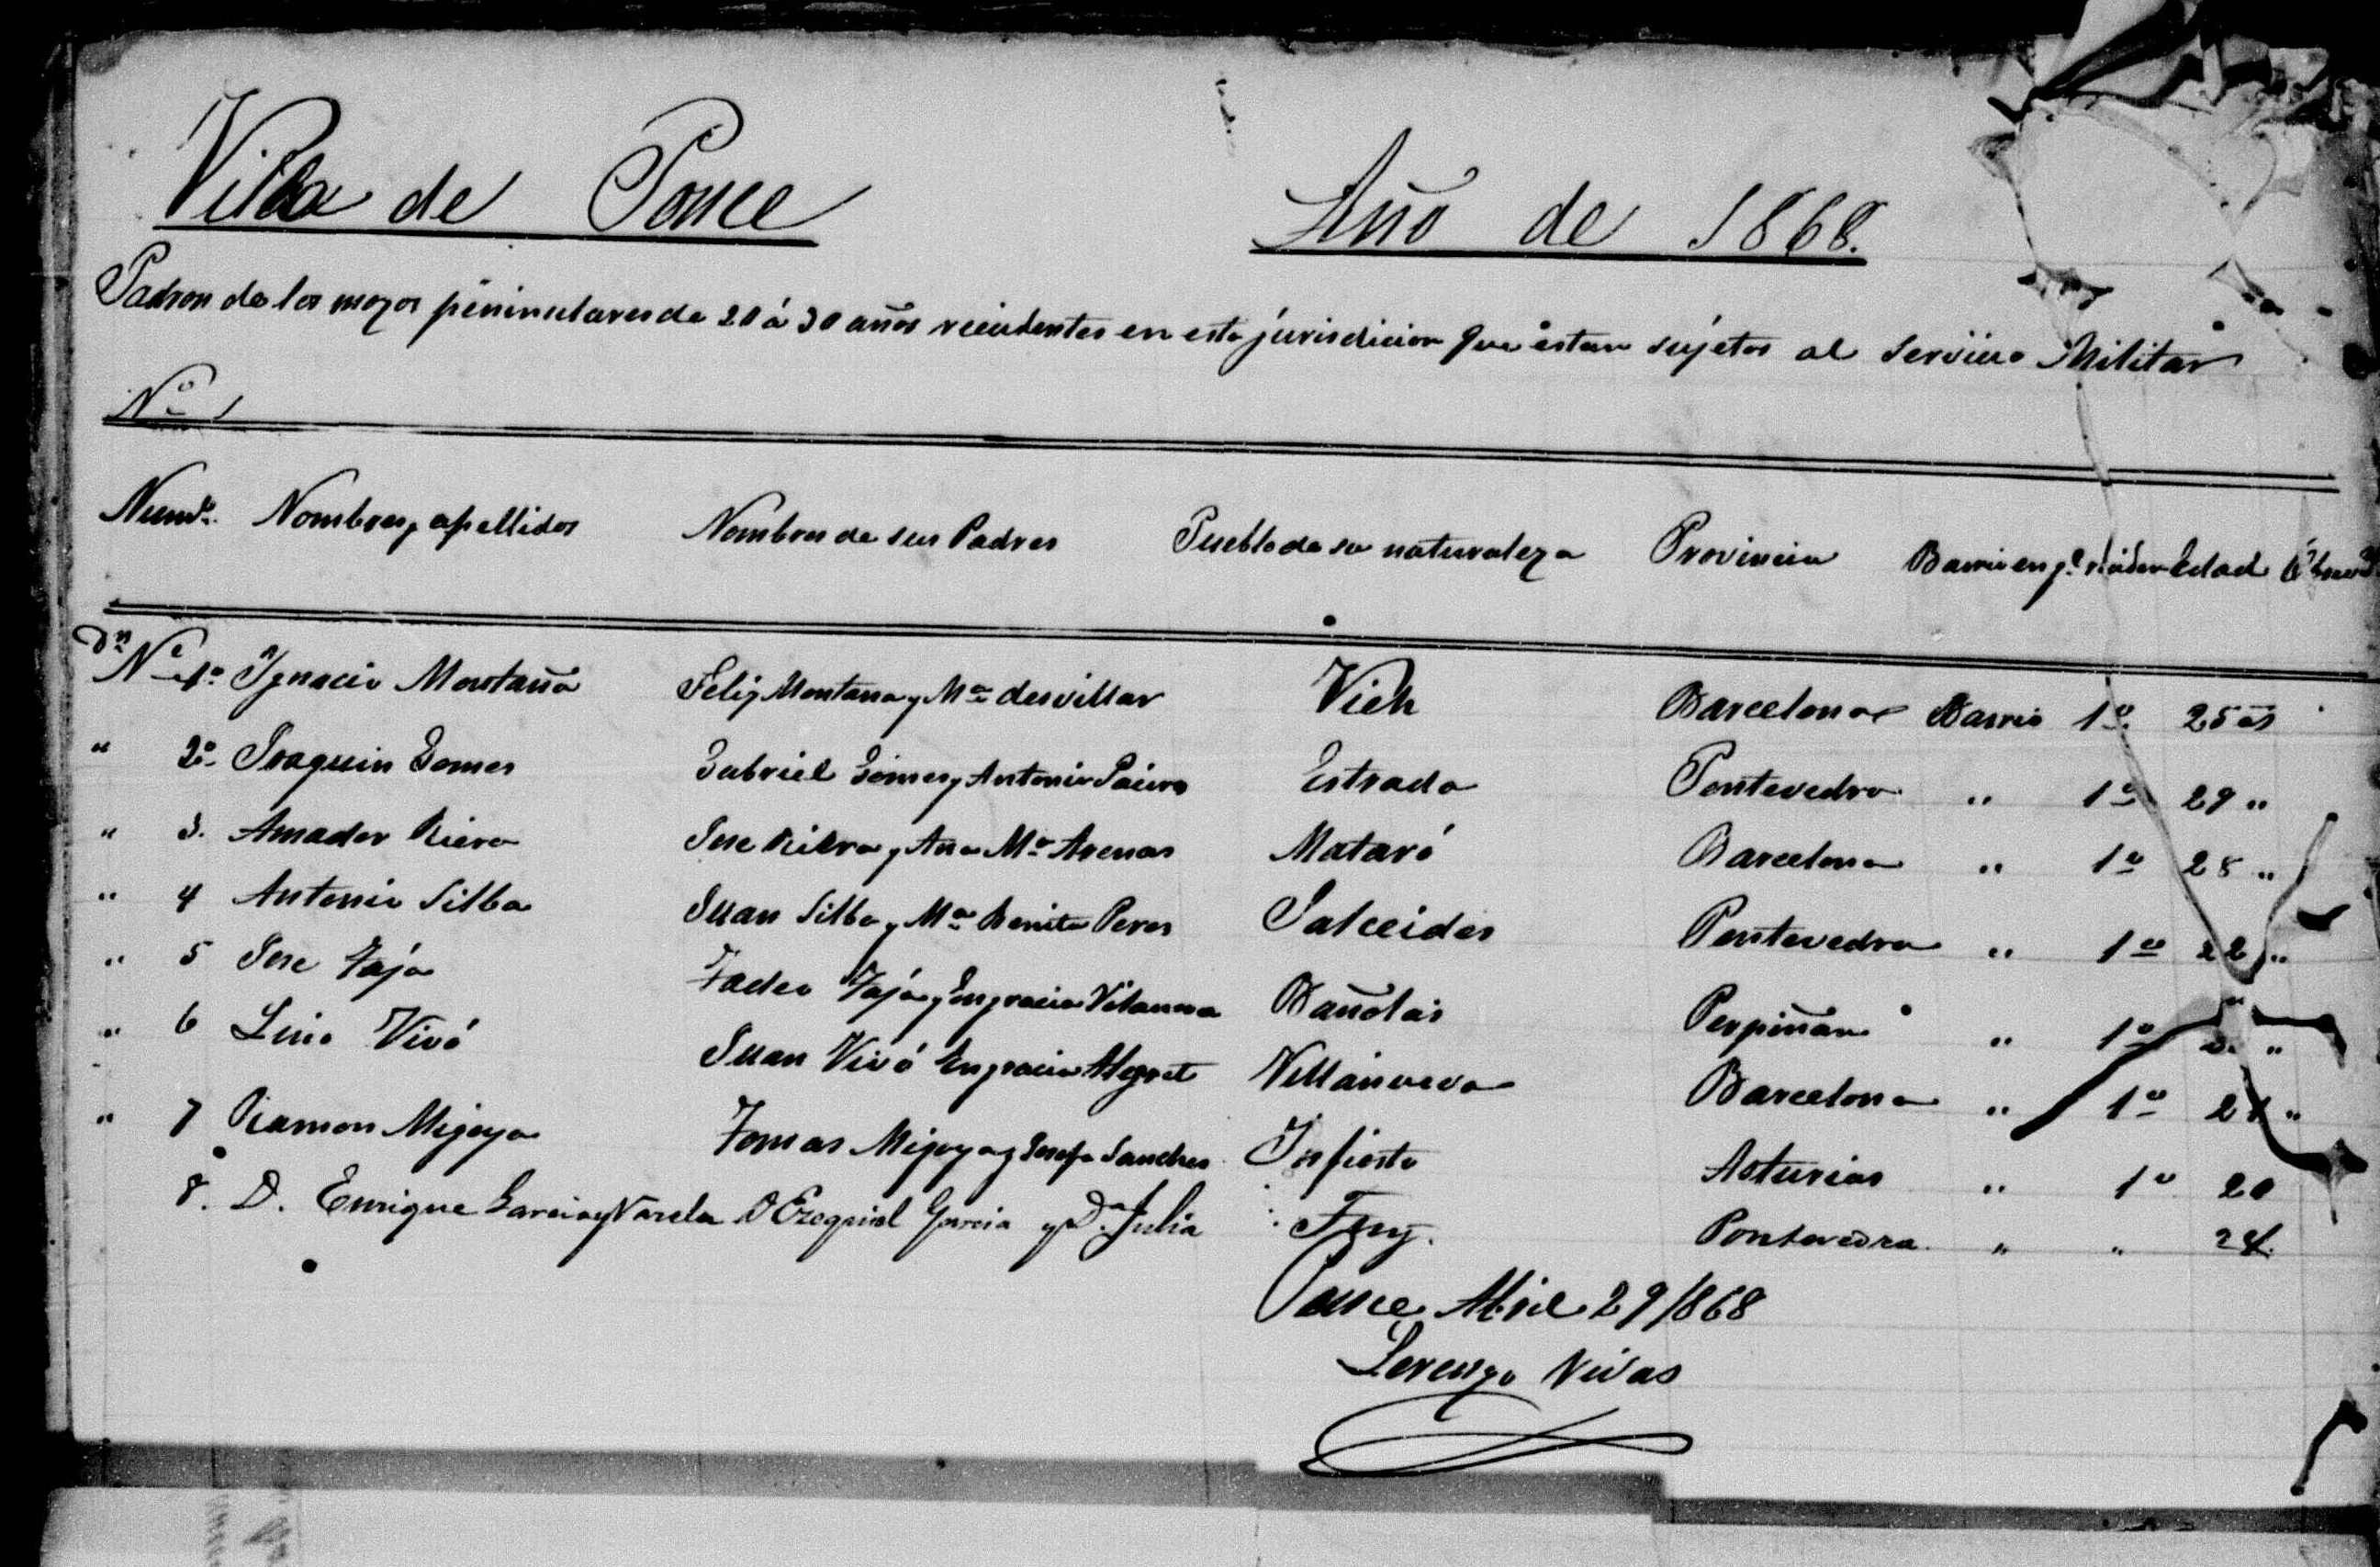 Villa de Ponce Año de 1868.
Padron de los mozos peninsulares de 20 á 30 años recidentes en esta jurisdicion que estan sujetos al servicio Militar
Nº 1
Numº. Nombres y apellidos Nombres de sus Padres Pueblo de su naturaleza Provincia Barrio en qe. reciden Edad
Dn Nº 1º Ygnacio Montaña Felix Montana y Mª desvillar Vich Barcelona Barrio 1º 25 as
" 2º Joaquin Gomes Gabriel Gomes y Antonia Estrada Pontevedra " 1º 29 "
" 3. Amador Riera Jose Riera y Ana Mª Arenas Mataró Barcelona " 1º 28 "
" 4 Antonio Silba Juan Silba y Mª Benita Peres Salceidos Pontevedra " 1º 22 "
" 5 Jose Tajá Tadeo Tajá y Engracia Vilanova Bañolas Perpiñan " 1º "
" 6 Lino Vivó Juan Vivó Engracia Alegret Villanueva Barcelona " 1º "
" 7 Ramon Migoya Tomas Migoya y Josefa Sanches Infiesto Asturias " 1º 20
8. D. Enrique Garcia y Varela D Ezequiel Garcia y Dª. Julia Tuy. Pontevedra. " " 24.
Ponce Abril 29/868
Lorenzo Vivas